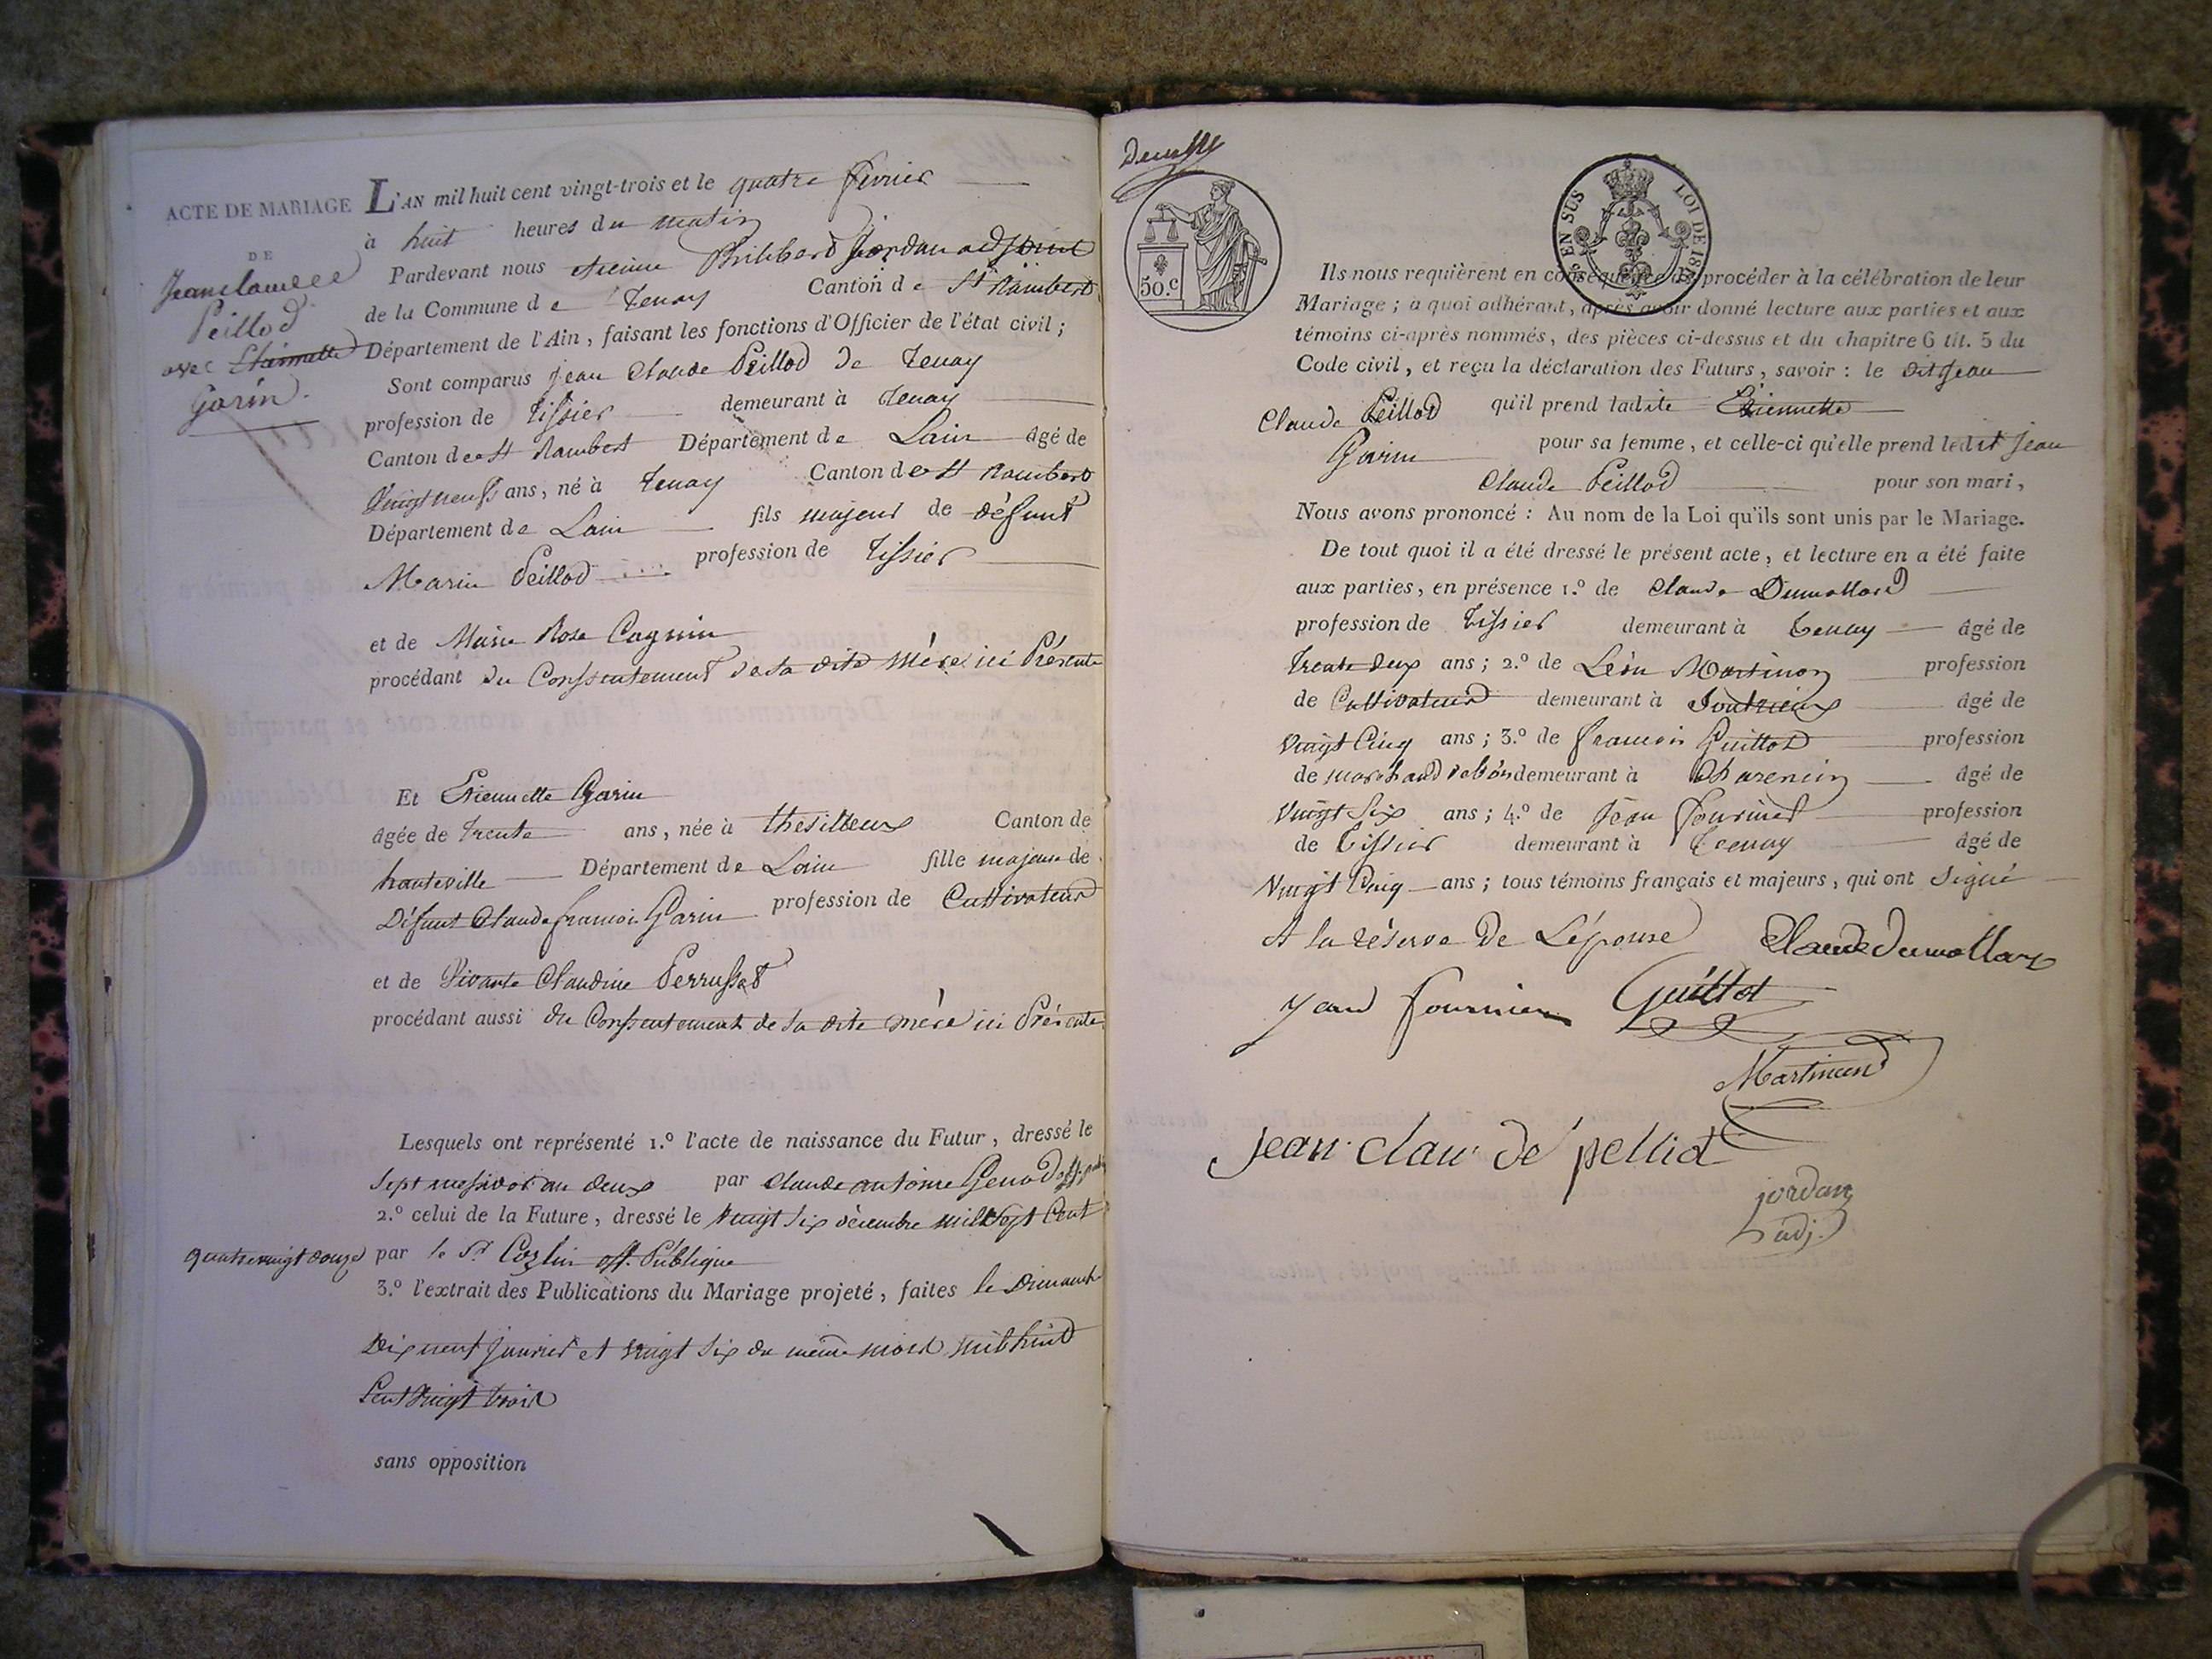 ACTE DE MARIAGE
DE
Jean claude
Peillod
avec Etiennette
Garin.
L'AN mil huit cent vingt-trois et le quatre fevrier
à huit heures du matin
Pardevant nous Philibert Jordan adjoint
de la Commune de Tenay Canton de St Rambert
Département de l'Ain, faisant les fonctions d'Officier de l'état civil ;
Sont comparus jean Claude Peillod de Tenay
profession de tissier demeurant à Tenay
Canton de St Rambert Département de Lain âgé de
Vingt neuf ans, né à Tenay Canton de St Rambert
Département de Lain fils majeur de défunt
Marin Peillod profession de tissier
et de Marie Rose Cagnin
procédant du Consentement de sa dite Mère ici Présente
Et Etiennette Garin
âgée de trente ans, née à thesillieux Canton de
hauteville Département de Lain fille majeure de
Défunt Claude francois Garin profession de Cultivateur
et de Vivante Claudine Perrusset
procédant aussi du Consentement de sa dite mère ici Présente
Lesquels ont représenté 1.º l'acte de naissance du Futur, dressé le
Sept messidor an deux par Claude antoine Genod
2.º celui de la Future, dressé le Vingt Six décembre mil Sept Cent
quatrevingt douze par le Sr Cozlin off. Publique
3.º l'extrait des Publications du Mariage projeté, faites le Dimanche
Dix neuf janvier et Vingt Six du meme mois mil huit
Cent Vingt trois
sans opposition
50.C
EN SUS LOI DE
Ils nous requièrent en conséquence de procéder à la célébration de leur
Mariage ; à quoi adhérant, après avoir donné lecture aux parties et aux
témoins ci-après nommés, des pièces ci-dessus et du chapitre 6 tit. 5 du
Code civil, et reçu la déclaration des Futurs, savoir : le dit Jean
Claude Peillod qu'il prend ladite Etiennette
Garin pour sa femme, et celle-ci qu'elle prend ledit Jean
Claude Peillod pour son mari,
Nous avons prononcé : Au nom de la Loi qu'ils sont unis par le Mariage.
De tout quoi il a été dressé le présent acte, et lecture en a été faite
aux parties, en présence 1.º de Claude Dumollard
profession de tissier demeurant à tenay âgé de
trente deux ans ; 2.º de Léon Martinon profession
de Cultivateur demeurant à âgé de
Vingt Cinq ans ; 3.º de francois Guillot profession
de marchand demeurant à Charencin âgé de
Vingt Six ans ; 4.º de Jean Fournier profession
de tissier demeurant à tenay âgé de
Vingt Cinq ans ; tous témoins français et majeurs, qui ont Signé
A la réserve de L'épouse Claude dumollard
jean fournier Guillot
Martinand
jean claude pelliod
jordan
adj.